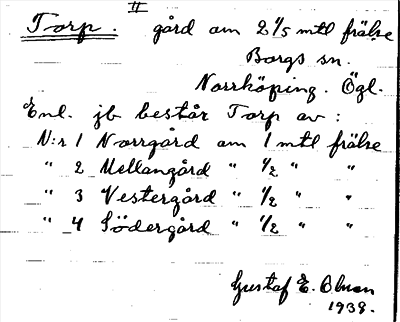 II
Torp. gård om 2 1/5 mtl frälse
Borgs sn.
Norrköping. Ögl.
Enl. jb består Torp av:
N:r 1 Norrgård om 1 mtl frälse
" 2 Mellangård " 1/2 " "
" 3 Vestergård " 1/2 " "
" 4 Södergård " 1/2 " "
Gustaf E.
1939.